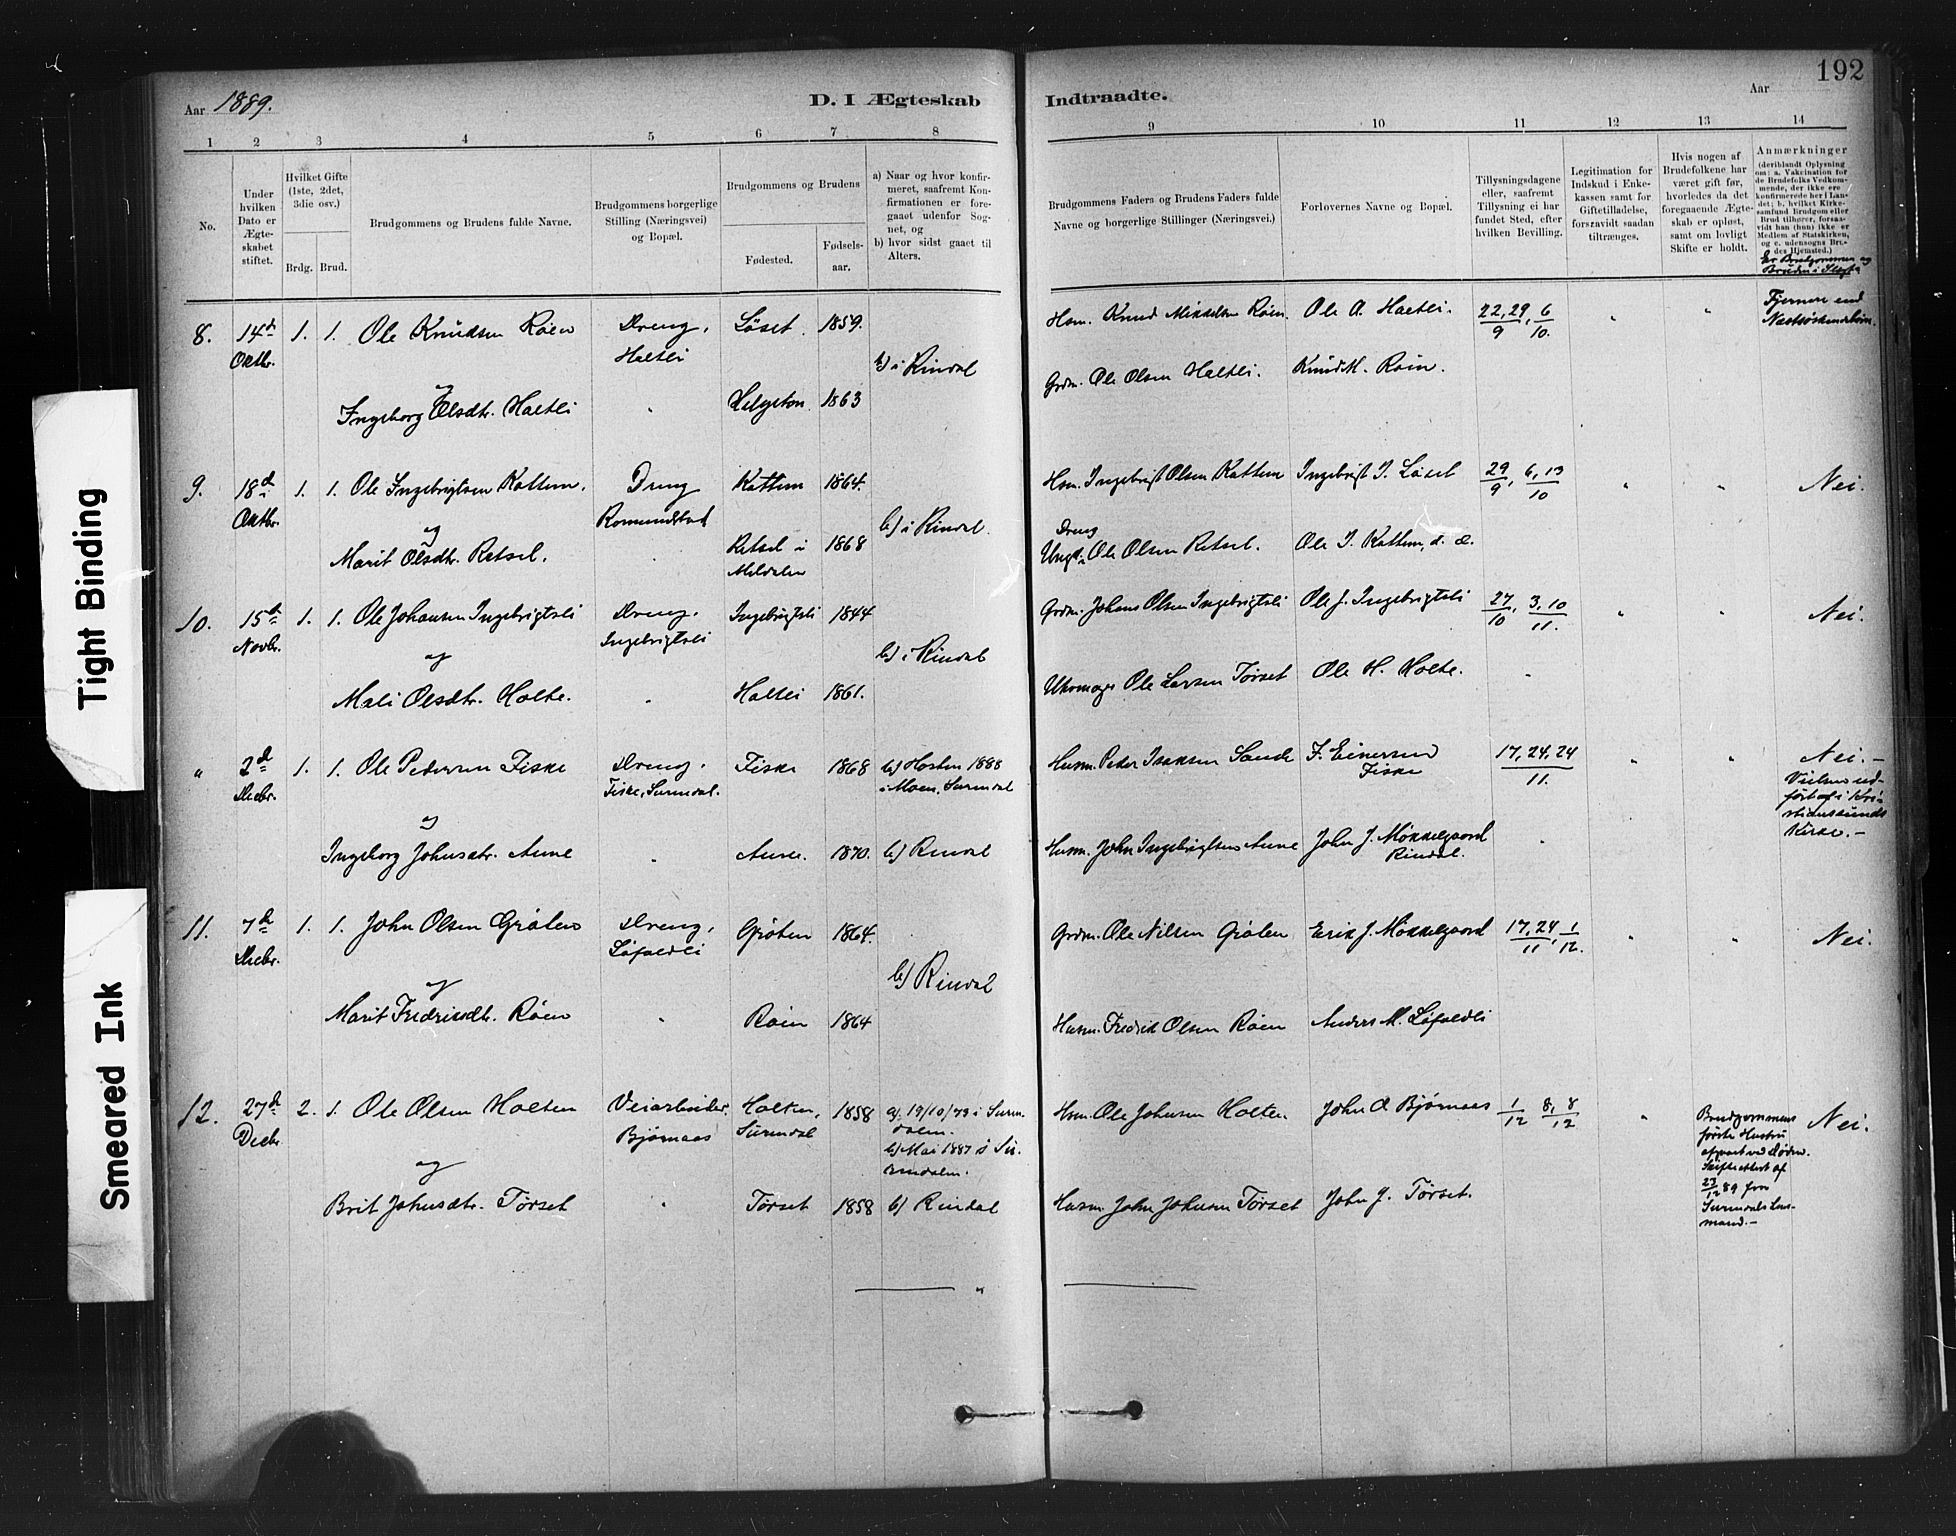 192
Aar 1889.
D. I Ægteskab
Indtraadte.
Aar
1 2 3 4 5 6 7 8
9 10 11 12 13 14
No.
Under hvilken Dato er Ægteskabet stiftet.
Hvilket Gifte (1ste, 2det, 3die osv.)
Brdg. Brud.
Brudgommens og Brudens fulde Navne.
Brudgommens borgerlige Stilling (Næringsvei) og Bopæl.
Brudgommens og Brudens
Fødested.
Fødselsaar.
a) Naar og hvor konfirmeret, saafremt Konfirmationen er foregaaet udenfor Sognet, og
b) hvor sidst gaaet til Alters.
Brudgommens Faders og Brudens Faders fulde Navne og borgerlige Stillinger (Næringsvei.)
Forlovernes Navne og Bopæl.
Tillysningsdagene eller, saafremt Tillysning ei har fundet Sted, efter hvilken Bevilling.
Legitimation for Indskud i Enkekassen samt for Giftetilladelse, forsaavidt saadan tiltrænges.
Hvis nogen af Brudefolkene har været gift før, hvorledes da det foregaaende Ægteskab er opløst, samt om lovligt Skifte er holdt.
Anmærkninger
(deriblandt Oplysning om: a. Vakcination for de Brudefolks Vedkommende, der ikke ere konfirmerede her i Landet; b. hvilket Kirkesamfund Brudgom eller Brud tilhører, forsaavidt han (hun) ikke er Medlem af Statskirken, og c. udensogns Brudes Hjemsted.)
Er Brudgommen og Bruden i Slægt
8. 14d Oktbr. 1. 1. Ole Knudsen Røen Dreng, Haltli Løset. 1859. b) i Rindal Hsm. Knud Mikkelsen Røen. Ole O. Haltli. 22, 29, 6 / 9 10. " " Fjernere end Næstsøskendebørn.
og
Ingeborg Olsdtr. Haltli " Helgeton 1863 Grdm. Ole Olsen Haltli. Knud M. Røen.
9. 18d Oktbr. 1. 1. Ole Ingebrigtsen Kattem. Dreng Romundstad Kattem 1864. b) i Rindal. Hsm. Ingebrigt Olsen Kattem Ingebrigt I. Løset 29, 6, 13 / 9 10 " " Nei.
og
Marit Olsdtr. Retsel. " Retsel i Meldalen 1868 Dreng Ungk. Ole Olsen Retsel. Ole I. Kattem, d. æ.
10. 15d Novbr. 1. 1. Ole Johansen Ingebrigtsli Dreng, Ingebrigtsli Ingebrigtsli 1844 b) i Rindal Grdm. Johans Olsen Ingebrigtsli Ole J. Ingebrigtsli 27, 3, 10 / 10 11. " " Nei.
og
Mali Olsdtr. Holte. " Haltli 1861. Ole Larsen Tørset Ole H. Holte. "
" 2d Decbr. 1. 1. Ole Pedersen Fiske Dreng, Fiske, Surendal. Fiske 1868 b) Høsten 1888 i Moen, Surendal Husm. Peder Isaksen Sande F. Einersen Fiske 17, 24, 24 / 11. " " Nei. –
Vielsen udført af i Kristianssunds Kirke. –
og
Ingeborg Johnsdtr. Aune " Aune. 1870. b) Rindal Husm. John Ingebrigtsen Aune John J. Møkkelgaard Rindal. "
11. 7d Decbr. 1. 1. John Olsen Grøten Dreng, Løfaldli Grøten 1864. b) Rindal Grdm. Ole Nilsen Grøten Erik J. Møkkelgaard 17, 24, 1 / 11 12. " " Nei.
og
Marit Fredriksdtr. Røen " Røen 1864 Husm. Fredrik Olsen Røen Anders M. Løfaldli
12. 27d Decbr. 2. 1. Ole Olsen Holten Veiarbeider, Bjørnaas Holten, Surendal 1858 a) 19/10/73 i Surendalen. b) Mai 1887 i Surendalen. Hsm. Ole Johnsen Holten John O. Bjørnaas 1, 8, 8 / 12 12 " Brudgommens første Hustru afgaaet ved Døden. Skifteattest af 23/12 89 fra Surendals Lensmand. – Nei.
og
Brit Johnsdtr. Tørset " Tørset 1858 b) Rindal Husm. John Johnsen Tørset John J. Tørset.
Tight Binding
Smeared Ink